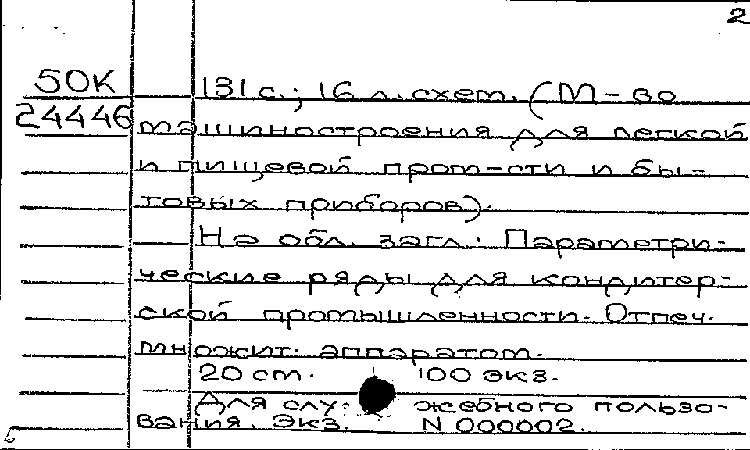 2
50К 131 с.; 16 л. схем. (М-во
24446 машиностроения для легкой
и пищевой пром-сти и бы-
товых приборов).
На обл. загл.: Параметри-
ческие ряды для кондитер-
ской промышленности. Отпеч.
множит. аппаратом.
20 см. 100 экз.
Для слу- жебного пользо-
вания. Экз. N 000002.